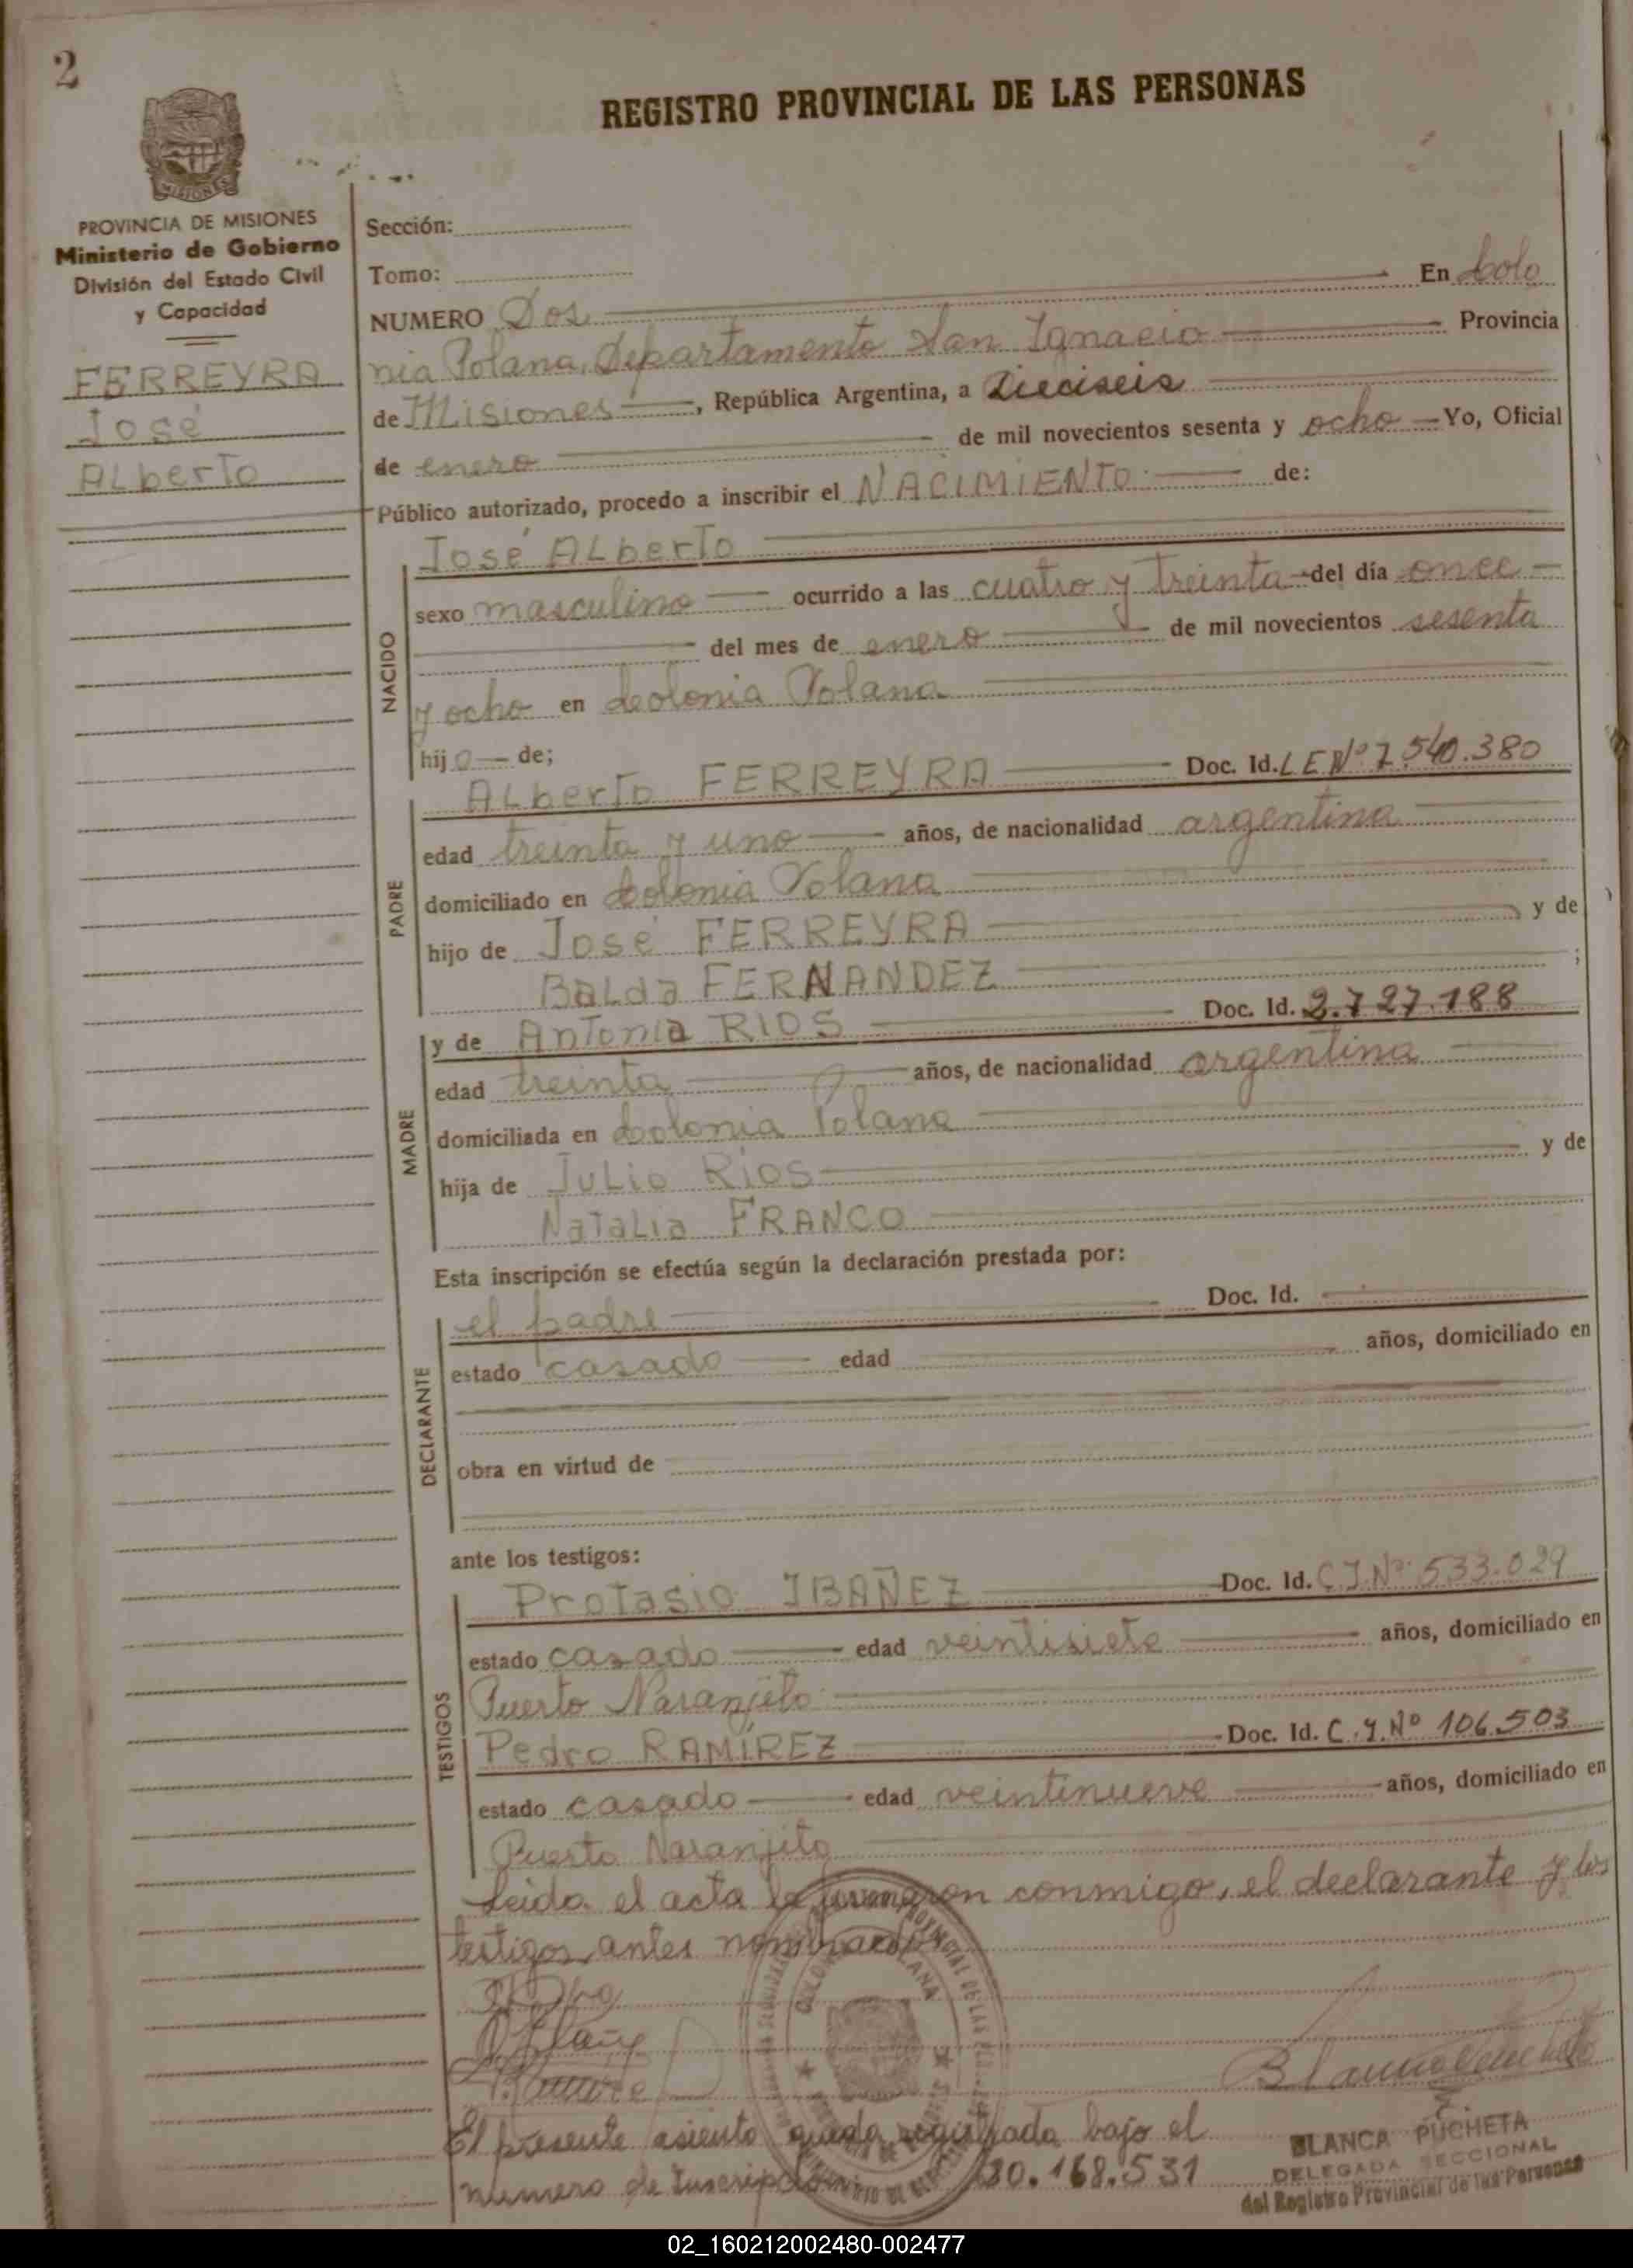 2
REGISTRO PROVINCIAL DE LAS PERSONAS
MISIONES
PROVINCIA DE MISIONES
Ministerio de Gobierno
División del Estado Civil
y Capacidad
FERREYRA
José
Alberto
Sección:
Tomo:
NUMERO Dos En Colo
nia Polana, Departamento San Ignacio Provincia
de Misiones, República Argentina, a Dieciseis
de enero de mil novecientos sesenta y ocho Yo, Oficial
Público autorizado, procedo a inscribir el NACIMIENTO de:
NACIDO
José Alberto
sexo masculino ocurrido a las cuatro y treinta del día once
del mes de enero de mil novecientos sesenta
y ocho en Colonia Polana
hijo de;
PADRE
Alberto FERREYRA Doc. Id. L E Nº 7.540.380
edad treinta y uno años, de nacionalidad argentina
domiciliado en Colonia Polana
hijo de José FERREYRA y de
Balda FERNANDEZ ;
MADRE
y de Antonia RIOS Doc. Id. 2.727.188
edad treinta años, de nacionalidad argentina
domiciliada en Colonia Polana
hija de Julio Rios y de
Natalia FRANCO
Esta inscripción se efectúa según la declaración prestada por:
DECLARANTE
el padre Doc. Id.
estado casado edad años, domiciliado en
obra en virtud de
ante los testigos:
TESTIGOS
Protasio IBAÑEZ Doc. Id. C.I.Nº 533.029
estado casado edad veintisiete años, domiciliado en
Puerto Naranjito
Pedro RAMÍREZ Doc. Id. C.I.Nº 106.503
estado casado edad veintinueve años, domiciliado en
Puerto Naranjito
Leida el acta la firmaron conmigo, el declarante y los
testigos antes nombrados
El presente asiento queda registrada bajo el
numero de Inscripción 20.168.531
BLANCA PUCHETA
DELEGADA SECCIONAL
del Registro Provincial de las Personas
02_160212002480-002477